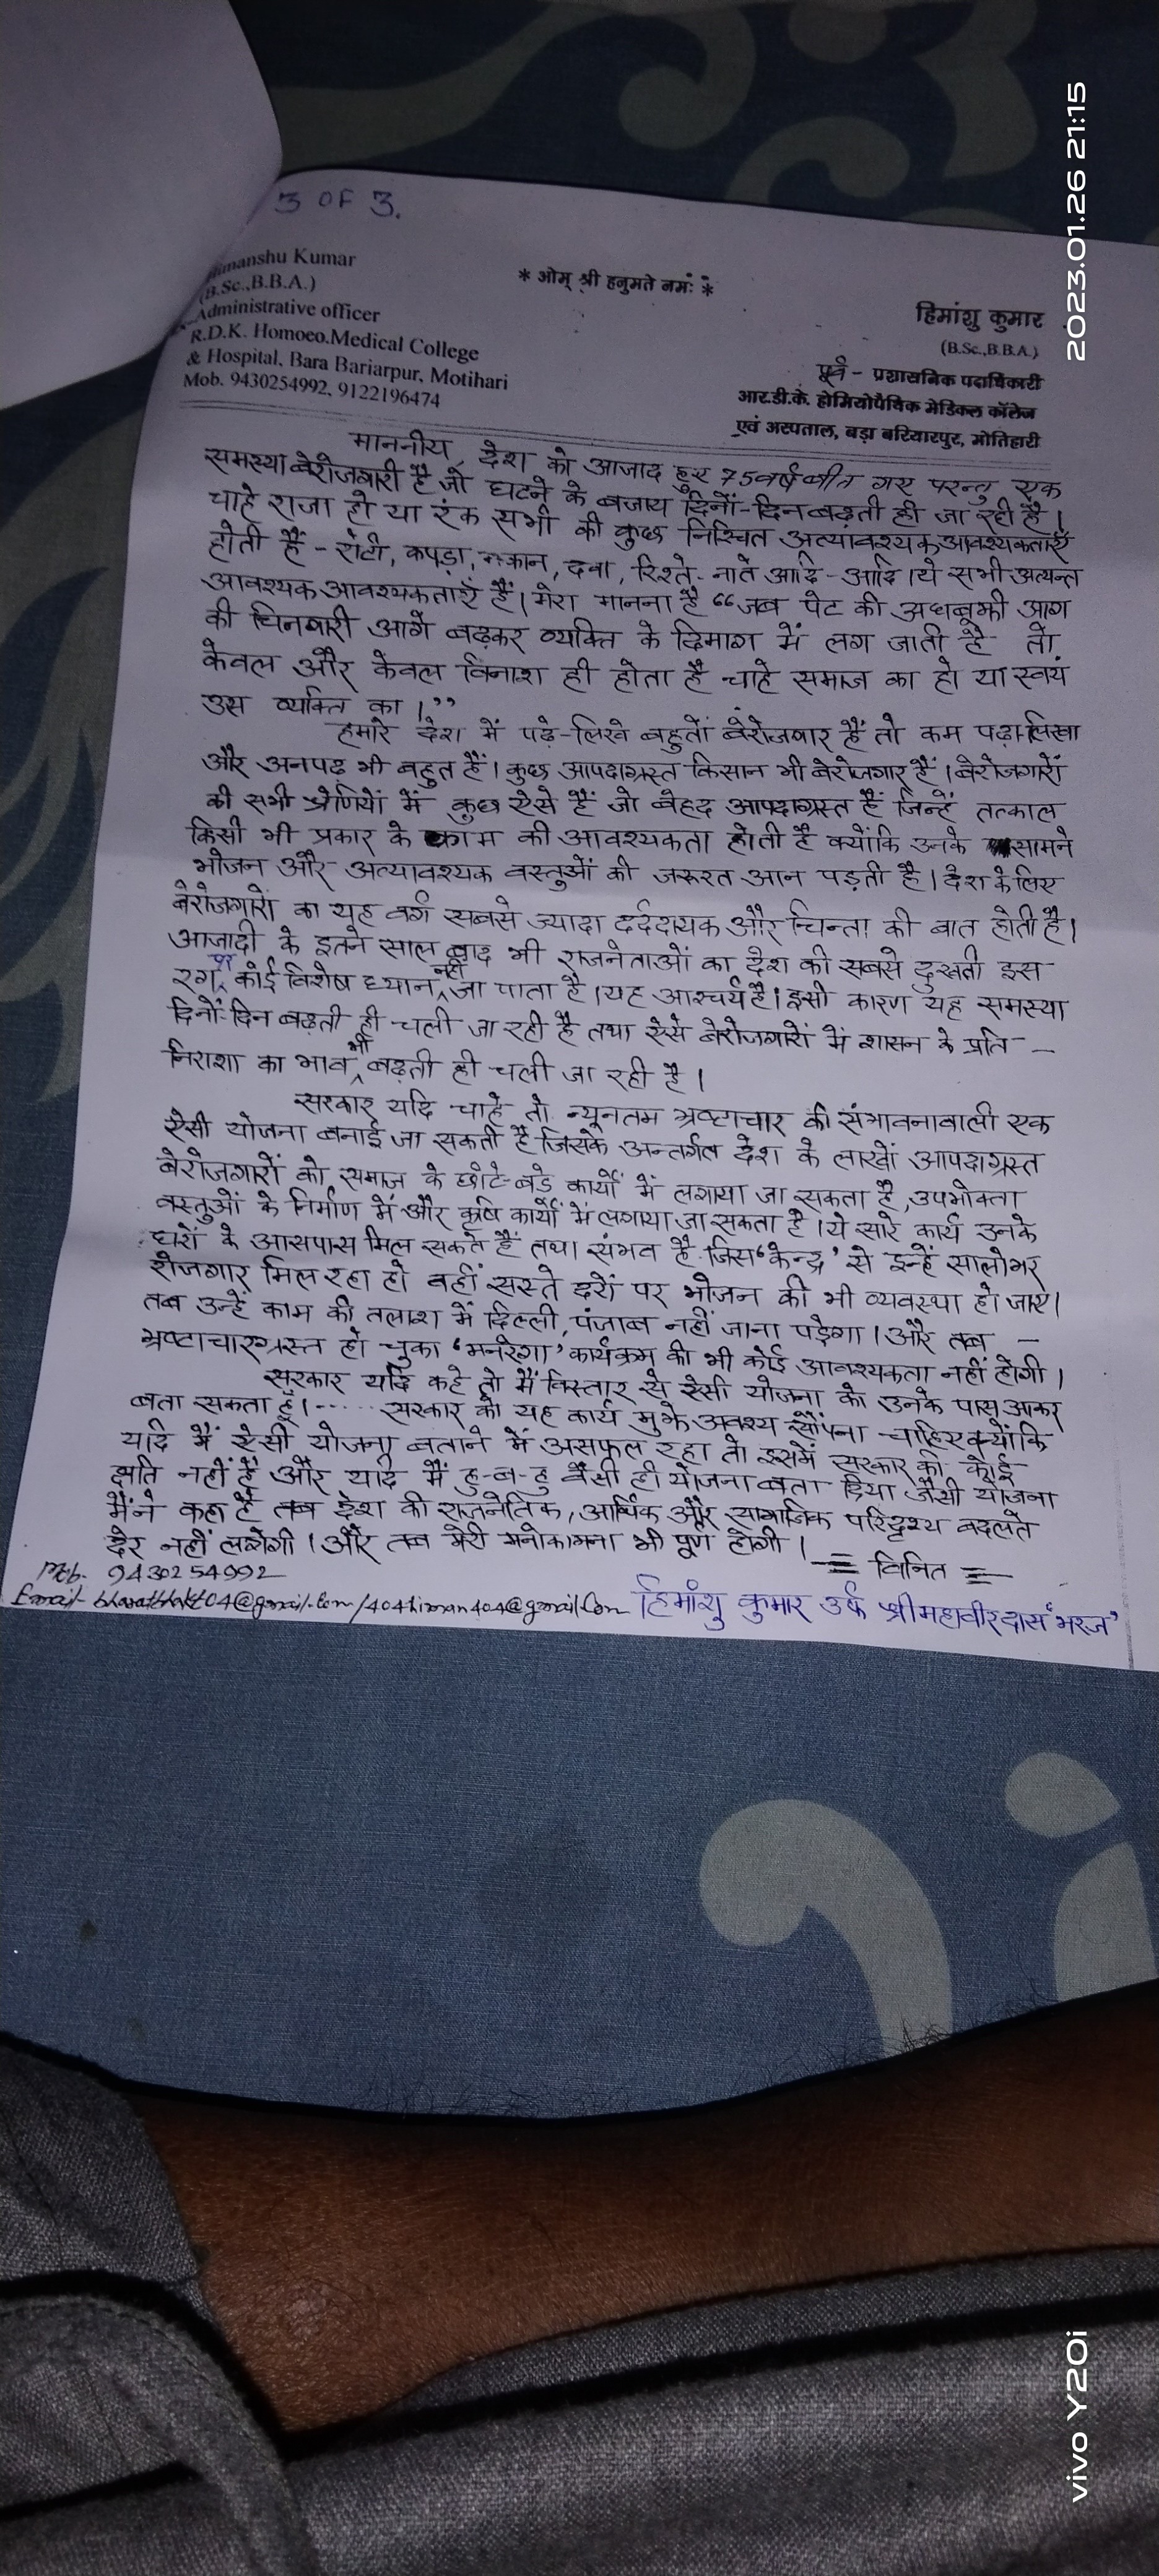 3 OF 3.
manshu Kumar
(B.Sc.,B.B.A.)
Administrative officer
R.D.K. Homoeo.Medical College
& Hospital, Bara Bariarpur, Motihari
Mob. 9430254992, 9122196474
* ओम् श्री हनुमते नमः *
हिमांशु कुमार
(B.Sc.,B.B.A.)
पूर्व - प्रशासनिक पदाधिकारी
आर.डी.के. होमियोपैथिक मेडिकल कॉलेज
एवं अस्पताल, बड़ा बरियारपुर, मोतिहारी
माननीय, देश को आजाद हुए 75 वर्ष बीत गए परन्तु एक
समस्या बेरोजगारी है जो घटने के बजाय दिनों-दिन बढ़ती ही जा रही है।
चाहे राजा हो या रंक सभी की कुछ निश्चित अत्यावश्यक आवश्यकताएँ
होती हैं - रोटी, कपड़ा, मकान, दवा, रिश्ते-नाते आदि-आदि। ये सभी अत्यन्त
आवश्यक आवश्यकताएँ हैं। मेरा मानना है “जब पेट की अधबूझी आग
की चिनगारी आगे बढ़कर व्यक्ति के दिमाग में लग जाती है तो
केवल और केवल विनाश ही होता है चाहे समाज का हो या स्वयं
उस व्यक्ति का।”
हमारे देश में पढ़े-लिखे बहुतों बेरोजगार हैं तो कम पढ़ा-लिखा
और अनपढ़ भी बहुत हैं। कुछ आपदाग्रस्त किसान भी बेरोजगार हैं। बेरोजगारों
की सभी श्रेणियों में कुछ ऐसे हैं जो बेहद आपदाग्रस्त हैं जिन्हें तत्काल
किसी भी प्रकार के काम की आवश्यकता होती है क्योंकि उनके सामने
भोजन और अत्यावश्यक वस्तुओं की जरूरत आन पड़ती है। देश के लिए
बेरोजगारों का यह वर्ग सबसे ज्यादा दर्ददायक और चिन्ता की बात होती है।
आजादी के इतने साल बाद भी राजनेताओं का देश की सबसे दुखती इस
रग पर कोई विशेष ध्यान नहीं जा पाता है। यह आश्चर्य है। इसी कारण यह समस्या
दिनों-दिन बढ़ती ही चली जा रही है तथा ऐसे बेरोजगारों में शासन के प्रति -
निराशा का भाव भी बढ़ती ही चली जा रही है।
सरकार यदि चाहे तो न्यूनतम भ्रष्टाचार की संभावनावाली एक
ऐसी योजना बनाई जा सकती है जिसके अन्तर्गत देश के लाखों आपदाग्रस्त
बेरोजगारों को समाज के छोटे-बड़े कार्यों में लगाया जा सकता है, उपभोक्ता
वस्तुओं के निर्माण में और कृषि कार्यों में लगाया जा सकता है। ये सारे कार्य उनके
घरों के आसपास मिल सकते हैं तथा संभव है जिस ‘केन्द्र’ से इन्हें सालोभर
रोजगार मिल रहा हो वहीं सस्ते दरों पर भोजन की भी व्यवस्था हो जाए।
तब उन्हें काम की तलाश में दिल्ली, पंजाब नहीं जाना पड़ेगा। और तब -
भ्रष्टाचारग्रस्त हो चुका ‘मनरेगा’ कार्यक्रम की भी कोई आवश्यकता नहीं होगी।
सरकार यदि कहे तो मैं विस्तार से ऐसी योजना को उनके पास आकर
बता सकता हूँ।..... सरकार को यह कार्य मुझे अवश्य सौंपना चाहिए क्योंकि
यदि मैं ऐसी योजना बताने में असफल रहा तो इसमें सरकार की कोई
क्षति नहीं है और यदि मैं हु-ब-हु वैसी ही योजना बता दिया जैसी योजना
मैंने कहा है तब देश की राजनैतिक, आर्थिक और सामाजिक परिदृश्य बदलते
देर नहीं लगेगी। और तब मेरी मनोकामना भी पूर्ण होगी।
= विनित =
Mob. 9430254992
Email- bharatbhakt04@gmail.com/404himan404@gmail.com
हिमांशु कुमार उर्फ श्रीमहावीरदास ‘भरज’
2023.01.26 21:15
vivo Y20i